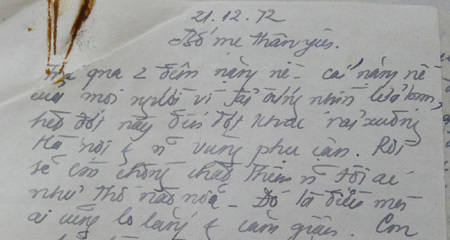 21.12.72
Bố mẹ thân yêu.
qua 2 đêm nặng nề - cái nặng nề
của mọi người vì phải đứng nhìn
hết đợt này đến đợt khác rơi xuống
Hà Nội & n vùng phụ cận. Rồi
sẽ còn chồng chất thêm n tội ác
như thế nào nữa - Đó là điều mà
ai cũng lo lắng & căm giận. Con